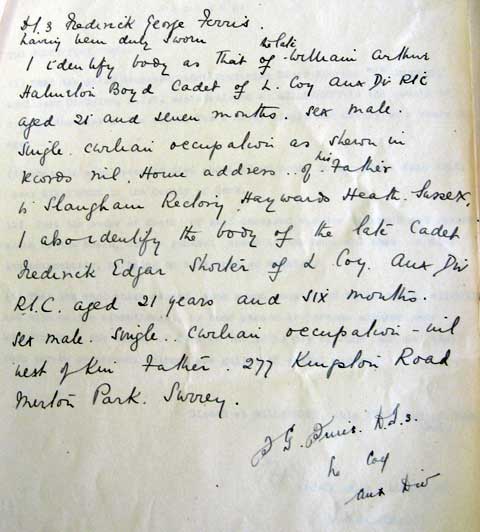 D.I.3 Frederick George Ferris.
having been duly sworn
I identify body as that of the late William Arthur
Hamilton Boyd Cadet of L. Coy Aux Div RIC
aged 21 and seven months. sex male.
Single. civilian occupation as shewn in
records nil Home address. of his Father
is Slaugham Rectory Haywards Heath. Sussex.
I also identify the body of the late Cadet
Frederick Edgar Shorter of L Coy. Aux Div
R.I.C. aged 21 years and six months.
sex male. single.. civilian occupation - nil
next of Kin Father. 277 Kingston Road
Merton Park. Surrey.
F G. Ferris. D.I.3.
L Coy
Aux Div